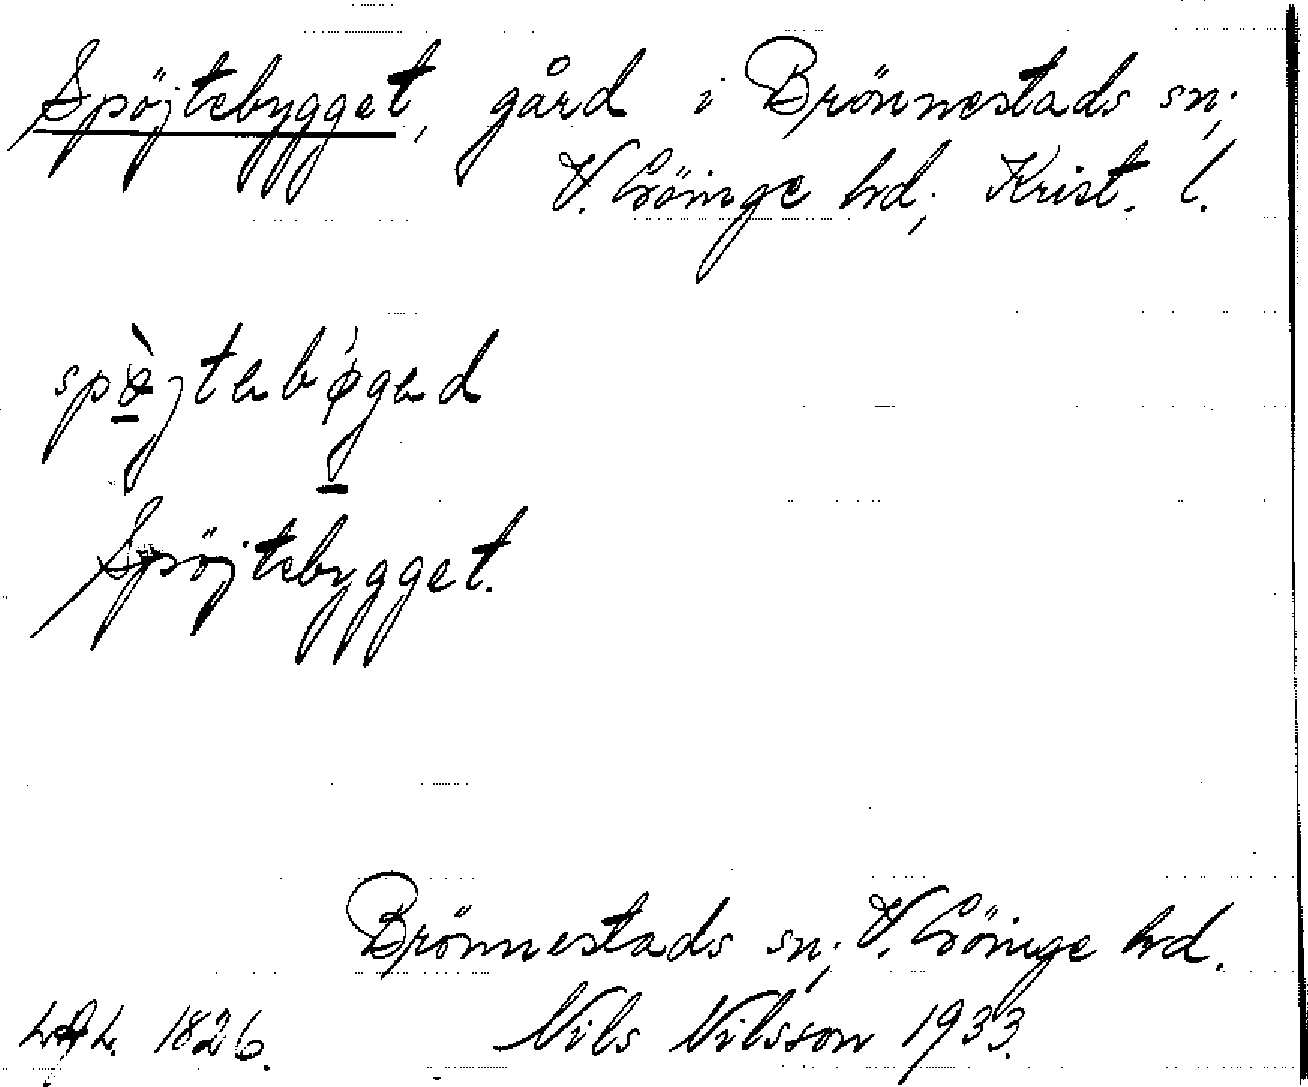 Spöjtebygget, gård i Brönnestads sn;
V. Göinge hd; Krist. l.
spø̀jtebǿged
Spöjtebygget.
Brönnestads sn; V. Göinge hd.
1826. Nils Nilsson 1933.